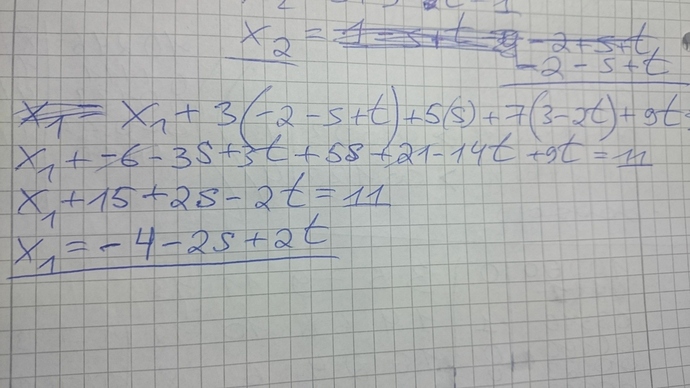 x₂ = -2-s+t
x₁ + 3(-2-s+t)+5(s)+7(3-2t)+9t=
x₁ + -6-3s+3t+5s+21-14t+9t=11
x₁+15+2s-2t=11
x₁=-4-2s+2t